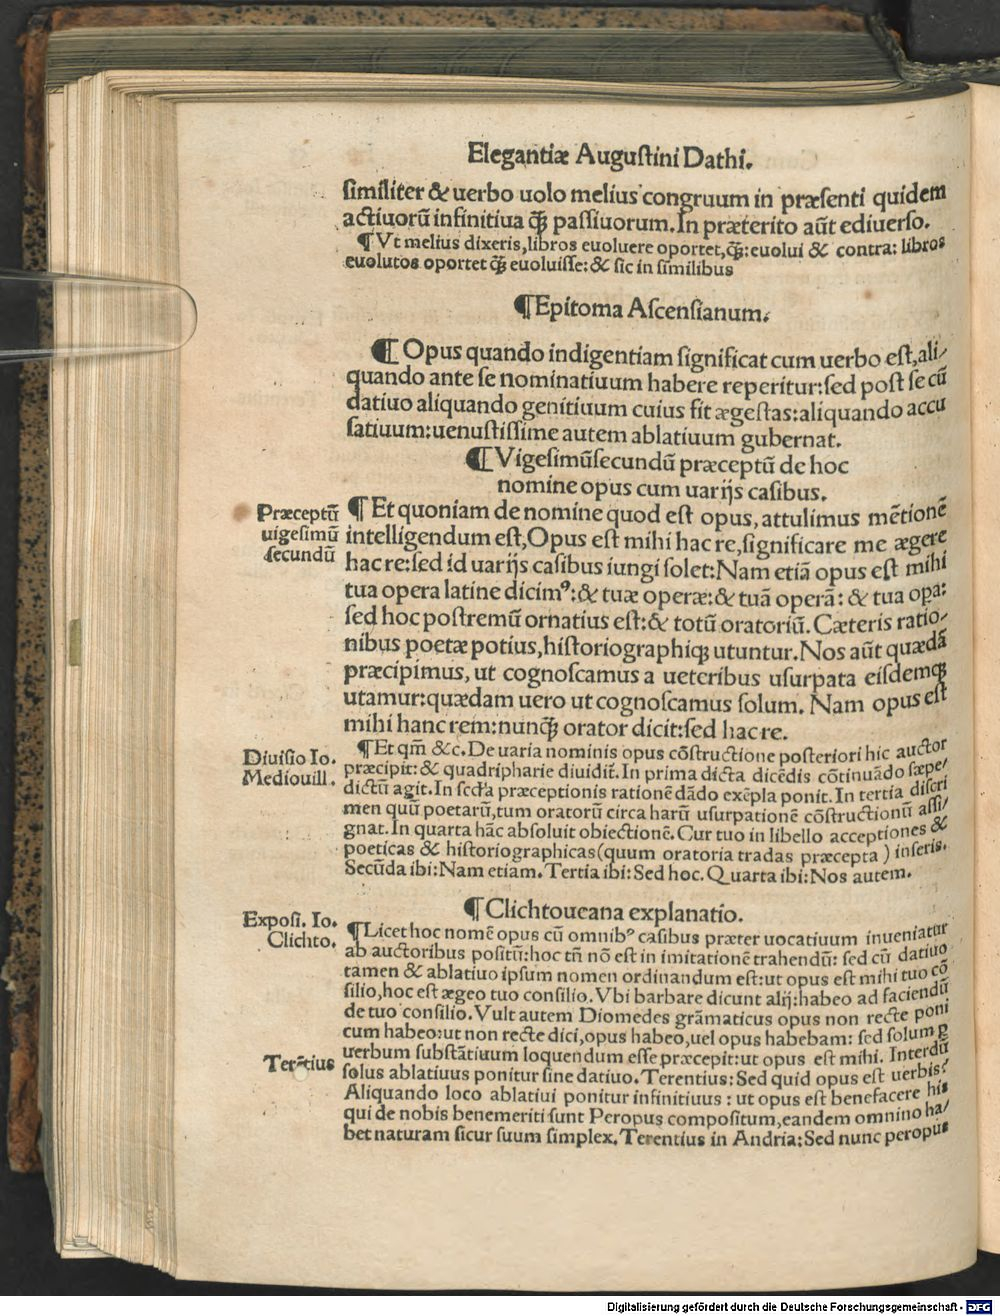 Elegantiæ Augustini Dathi.
similiter & uerbo uolo melius congruum in præsenti quidem
actiuorū infinitiua q̄ꝫ passiuorum. In præterito aūt ediuerso.
¶ Vt melius dixeris, libros euoluere oportet, q̄ꝫ: euolui & contra: libros
euolutos oportet q̄ꝫ euoluisse: & sic in similibus
¶ Epitoma Ascensianum.
¶ Opus quando indigentiam significat cum uerbo est, ali/
quando ante se nominatiuum habere reperitur: sed post se cū
datiuo aliquando genitiuum cuius fit ægestas: aliquando accu
satiuum: uenustissime autem ablatiuum gubernat.
¶ Vigesimūsecundū præceptū de hoc
nomine opus cum uarijs casibus.
Præceptū
uigesimū
secundū
¶ Et quoniam de nomine quod est opus, attulimus mētionē
intelligendum est, Opus est mihi hac re, significare me ægere
hac re: sed id uarijs casibus iungi solet: Nam etiā opus est mihi
tua opera latine dicimꝰ: & tuæ operæ: & tuā operā: & tua opa:
sed hoc postremū ornatius est: & totū oratoriū. Cæteris ratio/
nibus poetæ potius, historiographiqꝫ utuntur. Nos aūt quædā
præcipimus, ut cognoscamus a ueteribus usurpata eisdemqꝫ
utamur: quædam uero ut cognoscamus solum. Nam opus est
mihi hanc rem: nunq̄ꝫ orator dicit: sed hac re.
Diuisio Io.
Mediouill.
¶ Et qm̄ &c. De uaria nominis opus cōstructione posteriori hic auctor
præcipit: & quadripharie diuidit̄. In prima dicta dicēdis cōtinuādo sæpe/
dictū agit. In secūda præceptionis rationē dādo exēpla ponit. In tertia discri
men quū poetarū, tum oratorū circa harū usurpationē cōstructionū assi/
gnat. In quarta hāc absoluit obiectionē. Cur tuo in libello acceptiones &
poeticas & historiographicas (quum oratoria tradas præcepta) inseris.
Secūda ibi: Nam etiam. Tertia ibi: Sed hoc. Quarta ibi: Nos autem.
¶ Clichtoueana explanatio.
Exposi. Io.
Clichto.
¶ Licet hoc nomē opus cū omnibꝰ casibus præter uocatiuum inueniatur
ab auctoribus positū: hoc tn̄ nō est in imitationē trahendū: sed cū datiuo
tamen & ablatiuo ipsum nomen ordinandum est: ut opus est mihi tuo cō
silio, hoc est ægeo tuo consilio. Vbi barbare dicunt alij: habeo ad faciendū
de tuo consilio. Vult autem Diomedes grāmaticus opus non recte poni
cum habeo: ut non recte dici, opus habeo, uel opus habebam: sed solum ꝑ
uerbum substātiuum loquendum esse præcepit: ut opus est mihi. Interdū
Terētius
solus ablatiuus ponitur sine datiuo. Terentius: Sed quid opus est uerbis?
Aliquando loco ablatiui ponitur infinitiuus: ut opus est benefacere his
qui de nobis benemeriti sunt Peropus compositum, eandem omnino ha/
bet naturam sicur suum simplex. Terentius in Andria: Sed nunc peropus
Digitalisierung gefördert durch die Deutsche Forschungsgemeinschaft - DFG